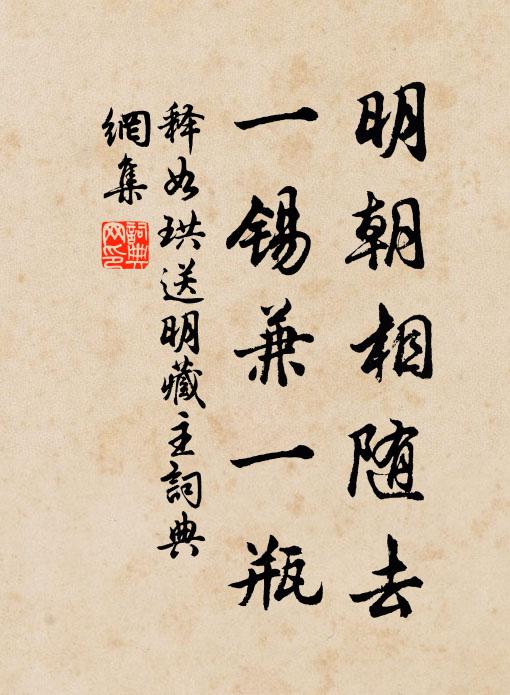 明朝相随去
一锡兼一瓶
释如珙送明藏主詞典
網集
詞典
网印